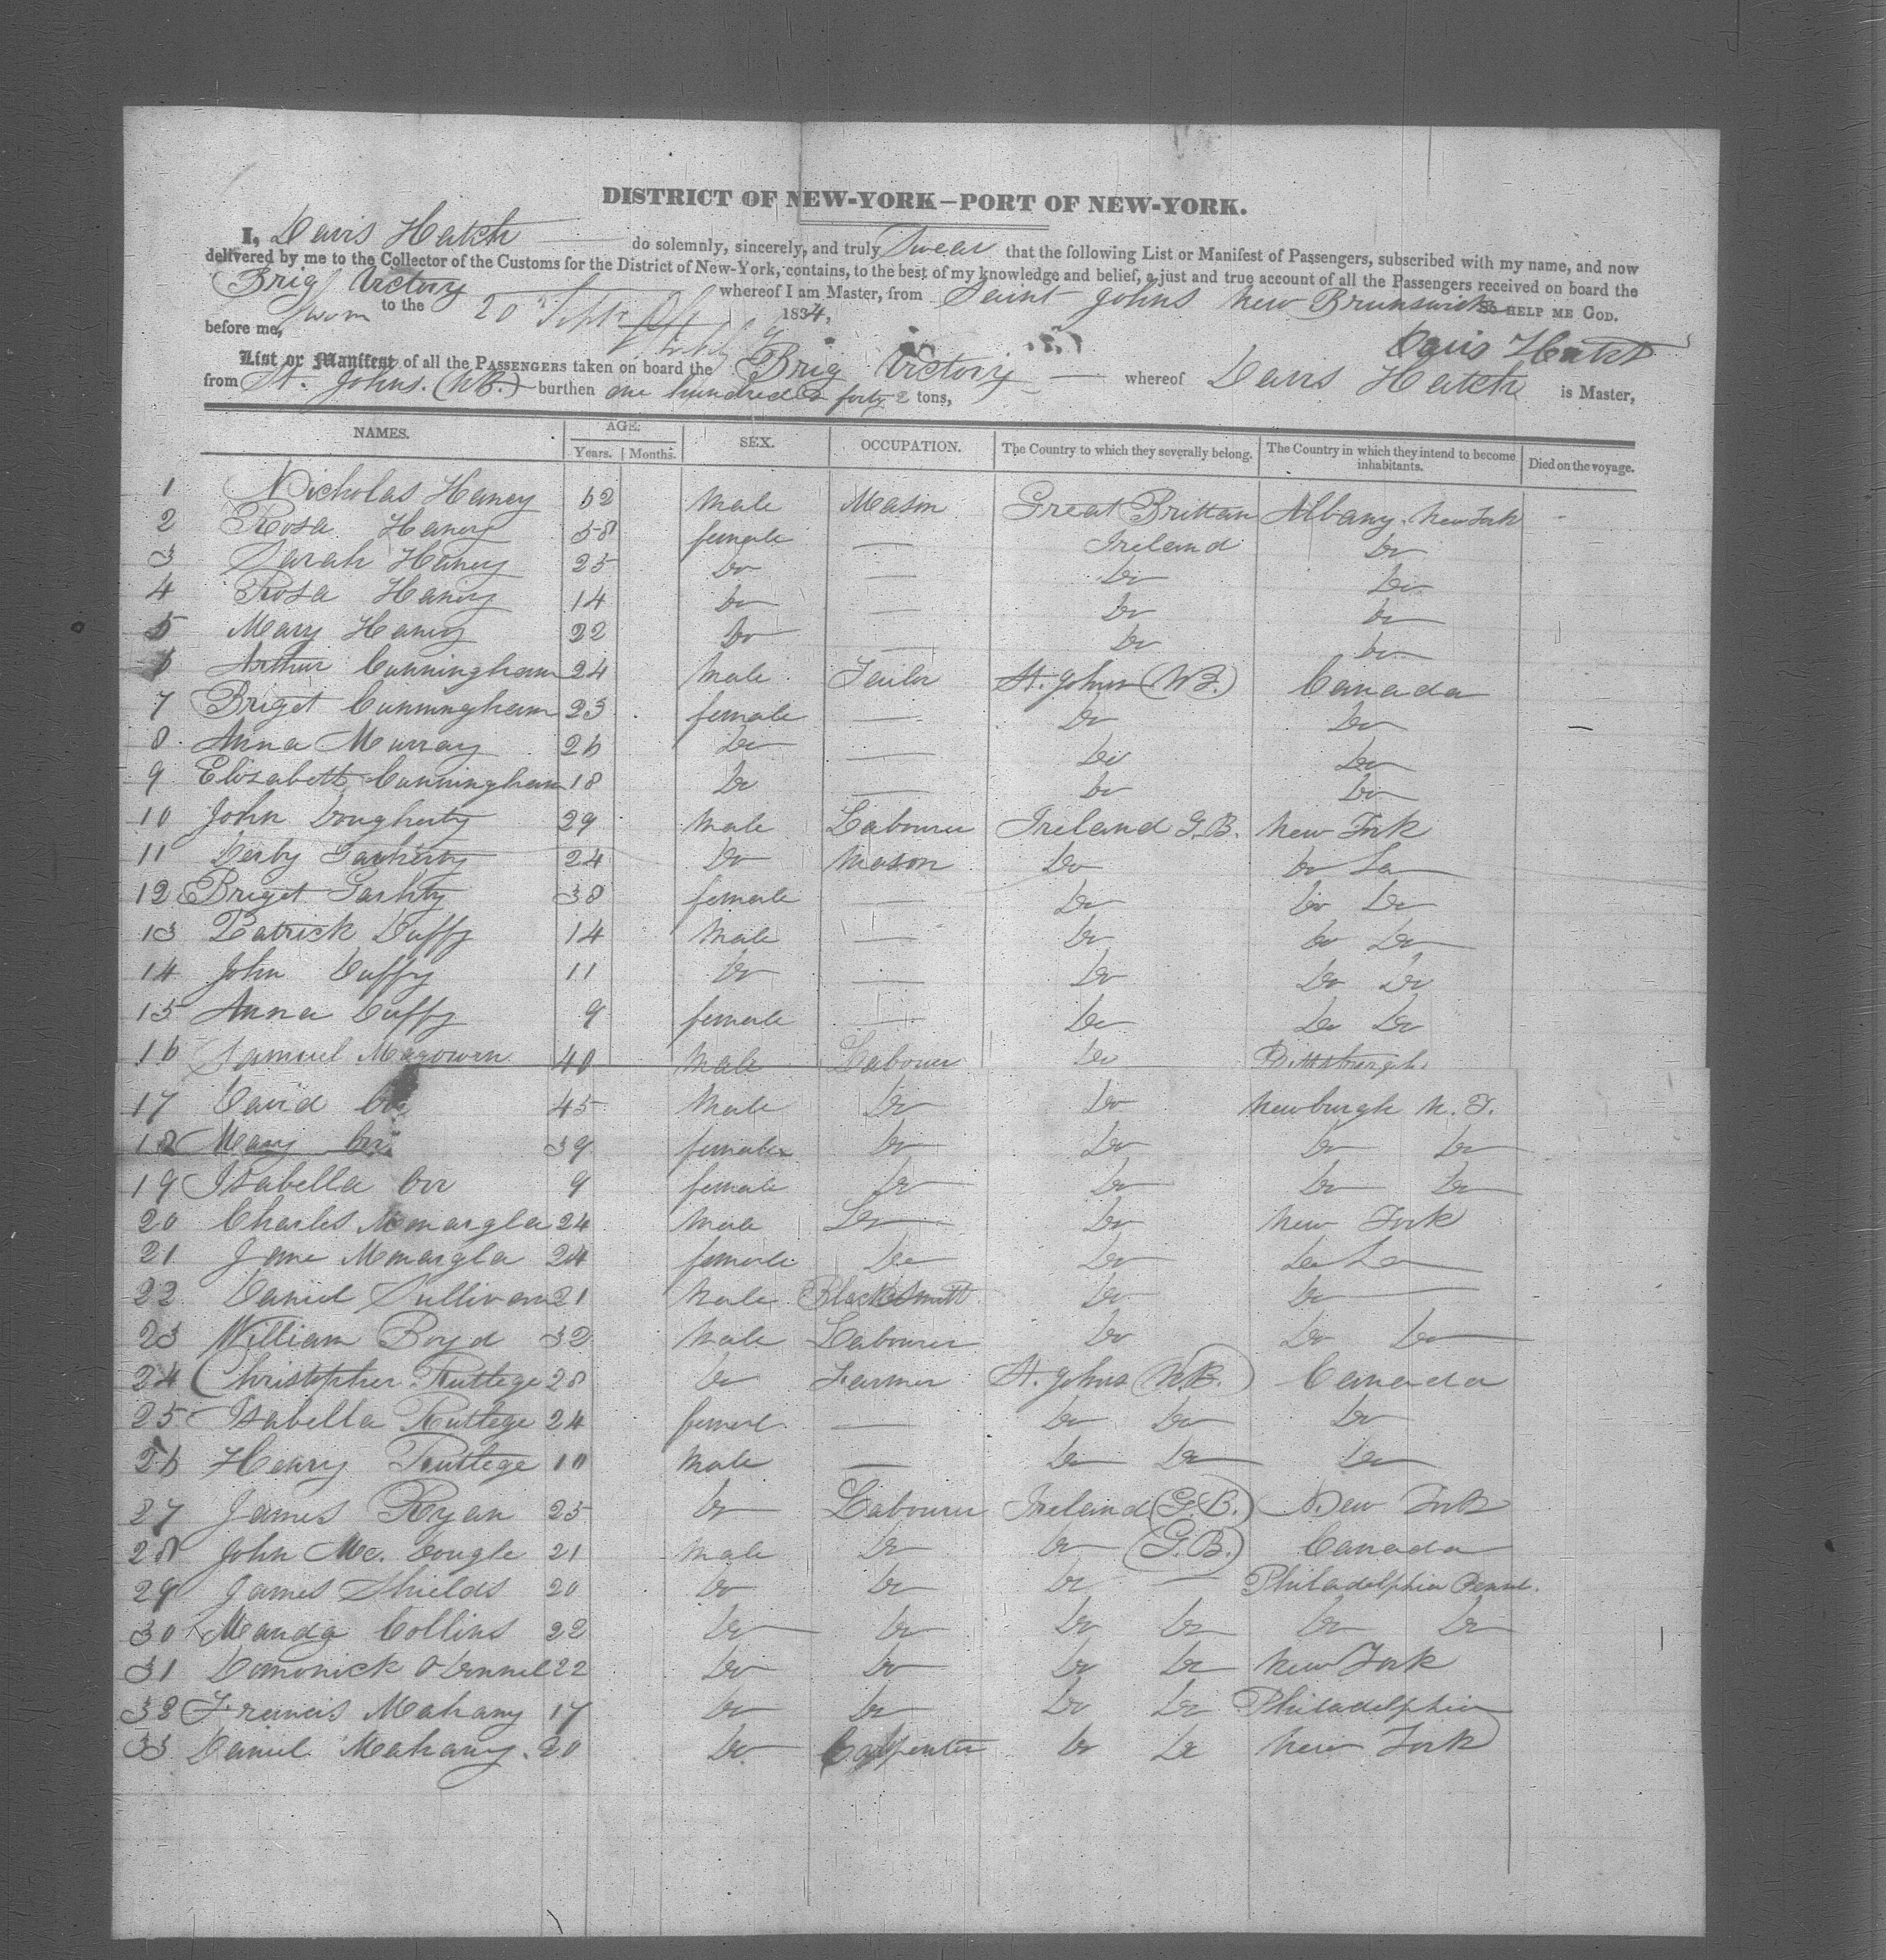 DISTRICT OF NEW-YORK—PORT OF NEW-YORK.
I, Davis Hatch do solemnly, sincerely, and truly Swear that the following List or Manifest of Passengers, subscribed with my name, and now
delivered by me to the Collector of the Customs for the District of New-York, contains, to the best of my knowledge and belief, a just and true account of all the Passengers received on board the
Brig Victory whereof I am Master, from Saint Johns New Brunswick SO HELP ME GOD.
Sworn to the 20 Sept 1834,
before me, Davis Hatch
List or Manifest of all the PASSENGERS taken on board the Brig Victory whereof Davis Hatch is Master,
from St. Johns. (NB.) burthen one hundred & forty 2 tons,
NAMES. AGE. SEX. OCCUPATION. The Country to which they severally belong. The Country in which they intend to become inhabitants. Died on the voyage.
Years. Months.
1 Nicholas Haney 62 Male Mason Great Brittan Albany. New York
2 Rosa Haney 58 female — Ireland Do
3 Sarah Haney 25 Do — Do Do
4 Rosa Haney 14 Do — Do Do
5 Mary Haney 22 Do — Do Do
6 Arthur Cunningham 24 Male Tailor St. Johns (NB.) Canada
7 Briget Cunningham 23 female — Do Do
8 Anna Murray 26 Do — Do Do
9 Elizabeth Cunningham 18 Do — Do Do
10 John Dougherty 29 Male Labourer Ireland G.B. New York
11 Derby 24 Do Mason Do Do Do
12 Briget 38 female — Do Do Do
13 Patrick Duffy 14 Male — Do Do Do
14 John Duffy 11 Do — Do Do Do
15 Anna Duffy 9 female — Do Do Do
16 Samuel Magowen 40 Male Labourer Do Pittsburgh.
17 David 45 Male Do Do Newburgh N. Y.
18 Mary 39 female Do Do Do Do
19 Isabella Orr 9 female Do Do Do Do
20 Charles 24 Male Do Do New York
21 Jane 24 female Do Do Do Do
22 Daniel Sullivan 21 Male Blacksmith Do Do
23 William Boyd 32 Male Labourer Do Do Do
24 Christopher Ruttege 28 Do Farmer St. Johns (N.B.) Canada
25 Isabella Ruttege 24 femal — Do Do Do
26 Henry Ruttege 10 Male — Do Do Do
27 James Ryan 25 Do Labourer Ireland (G.B.) New York
28 John Mc. Dougle 21 Male Do Do (G.B.) Canada
29 James Shields 20 Do Do Do — Philadelphia Pennl.
30 Collins 22 Do Do Do Do Do Do
31 Domonick O Donnel 22 Do Do Do Do New York
32 Francis Mahany 17 Do Do Do Do Philadelphia
33 Daniel Mahany. 20 Do Carpenter Do Do New York